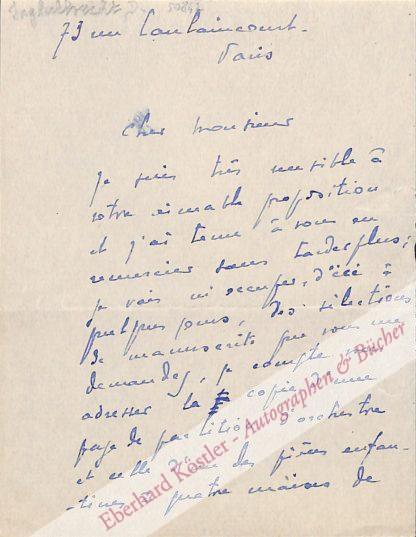 73 rue Caulaincourt.
Paris
Cher Monsieur
Je suis très sensible à
votre aimable proposition
et j'ai tenu à vous en
remercier sans tarder plus;
je vais m'occuper, d'ici à
quelques jours, des sélections
de manuscrits que vous me
demandez, je compte vous
adresser la copie d'une
page de partition d'orchestre
et celle d'une des pièces enfan-
-tines à quatre mains de
Eberhard Köstler - Autographen & Bücher